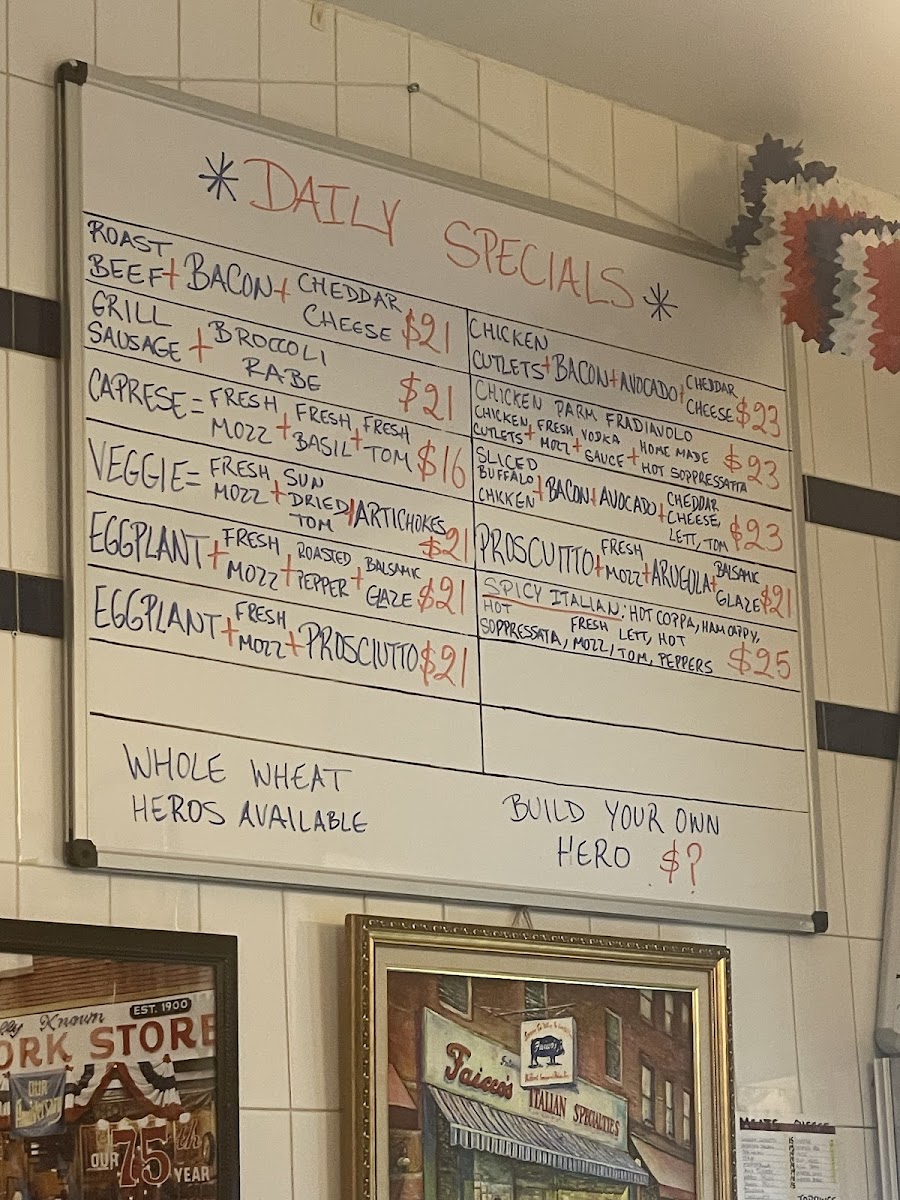 * DAILY SPECIALS *
ROAST
BEEF + BACON + CHEDDAR
CHEESE $21
GRILL
SAUSAGE + BROCCOLI
RABE $21
CAPRESE = FRESH MOZZ + FRESH BASIL + FRESH TOM $16
VEGGIE = FRESH MOZZ + SUN DRIED TOM / ARTICHOKES $21
EGGPLANT + FRESH MOZZ + ROASTED PEPPER + BALSAMIC GLAZE $21
EGGPLANT + FRESH MOZZ + PROSCIUTTO $21
CHICKEN
CUTLETS + BACON + AVOCADO + CHEDDAR CHEESE $23
CHICKEN PARM FRADIAVOLO
CHICKEN CUTLETS + FRESH MOZZ + VODKA SAUCE + HOME MADE HOT SOPPRESSATTA $23
SLICED BUFFALO CHICKEN + BACON + AVOCADO + CHEDDAR CHEESE, LETT, TOM $23
PROSCUTTO + FRESH MOZZ + ARUGULA + BALSAMIC GLAZE $21
SPICY ITALIAN: HOT COPPA, HAM CAPPY,
HOT SOPPRESSATA, FRESH MOZZ, LETT, TOM, HOT PEPPERS $25
WHOLE WHEAT
HEROS AVAILABLE
BUILD YOUR OWN
HERO $?
EST. 1900
Known
ORK STORE
OUR
Anniversary
OUR 75th YEAR
Faicco's
ITALIAN SPECIALTIES
MEATS CHEESE